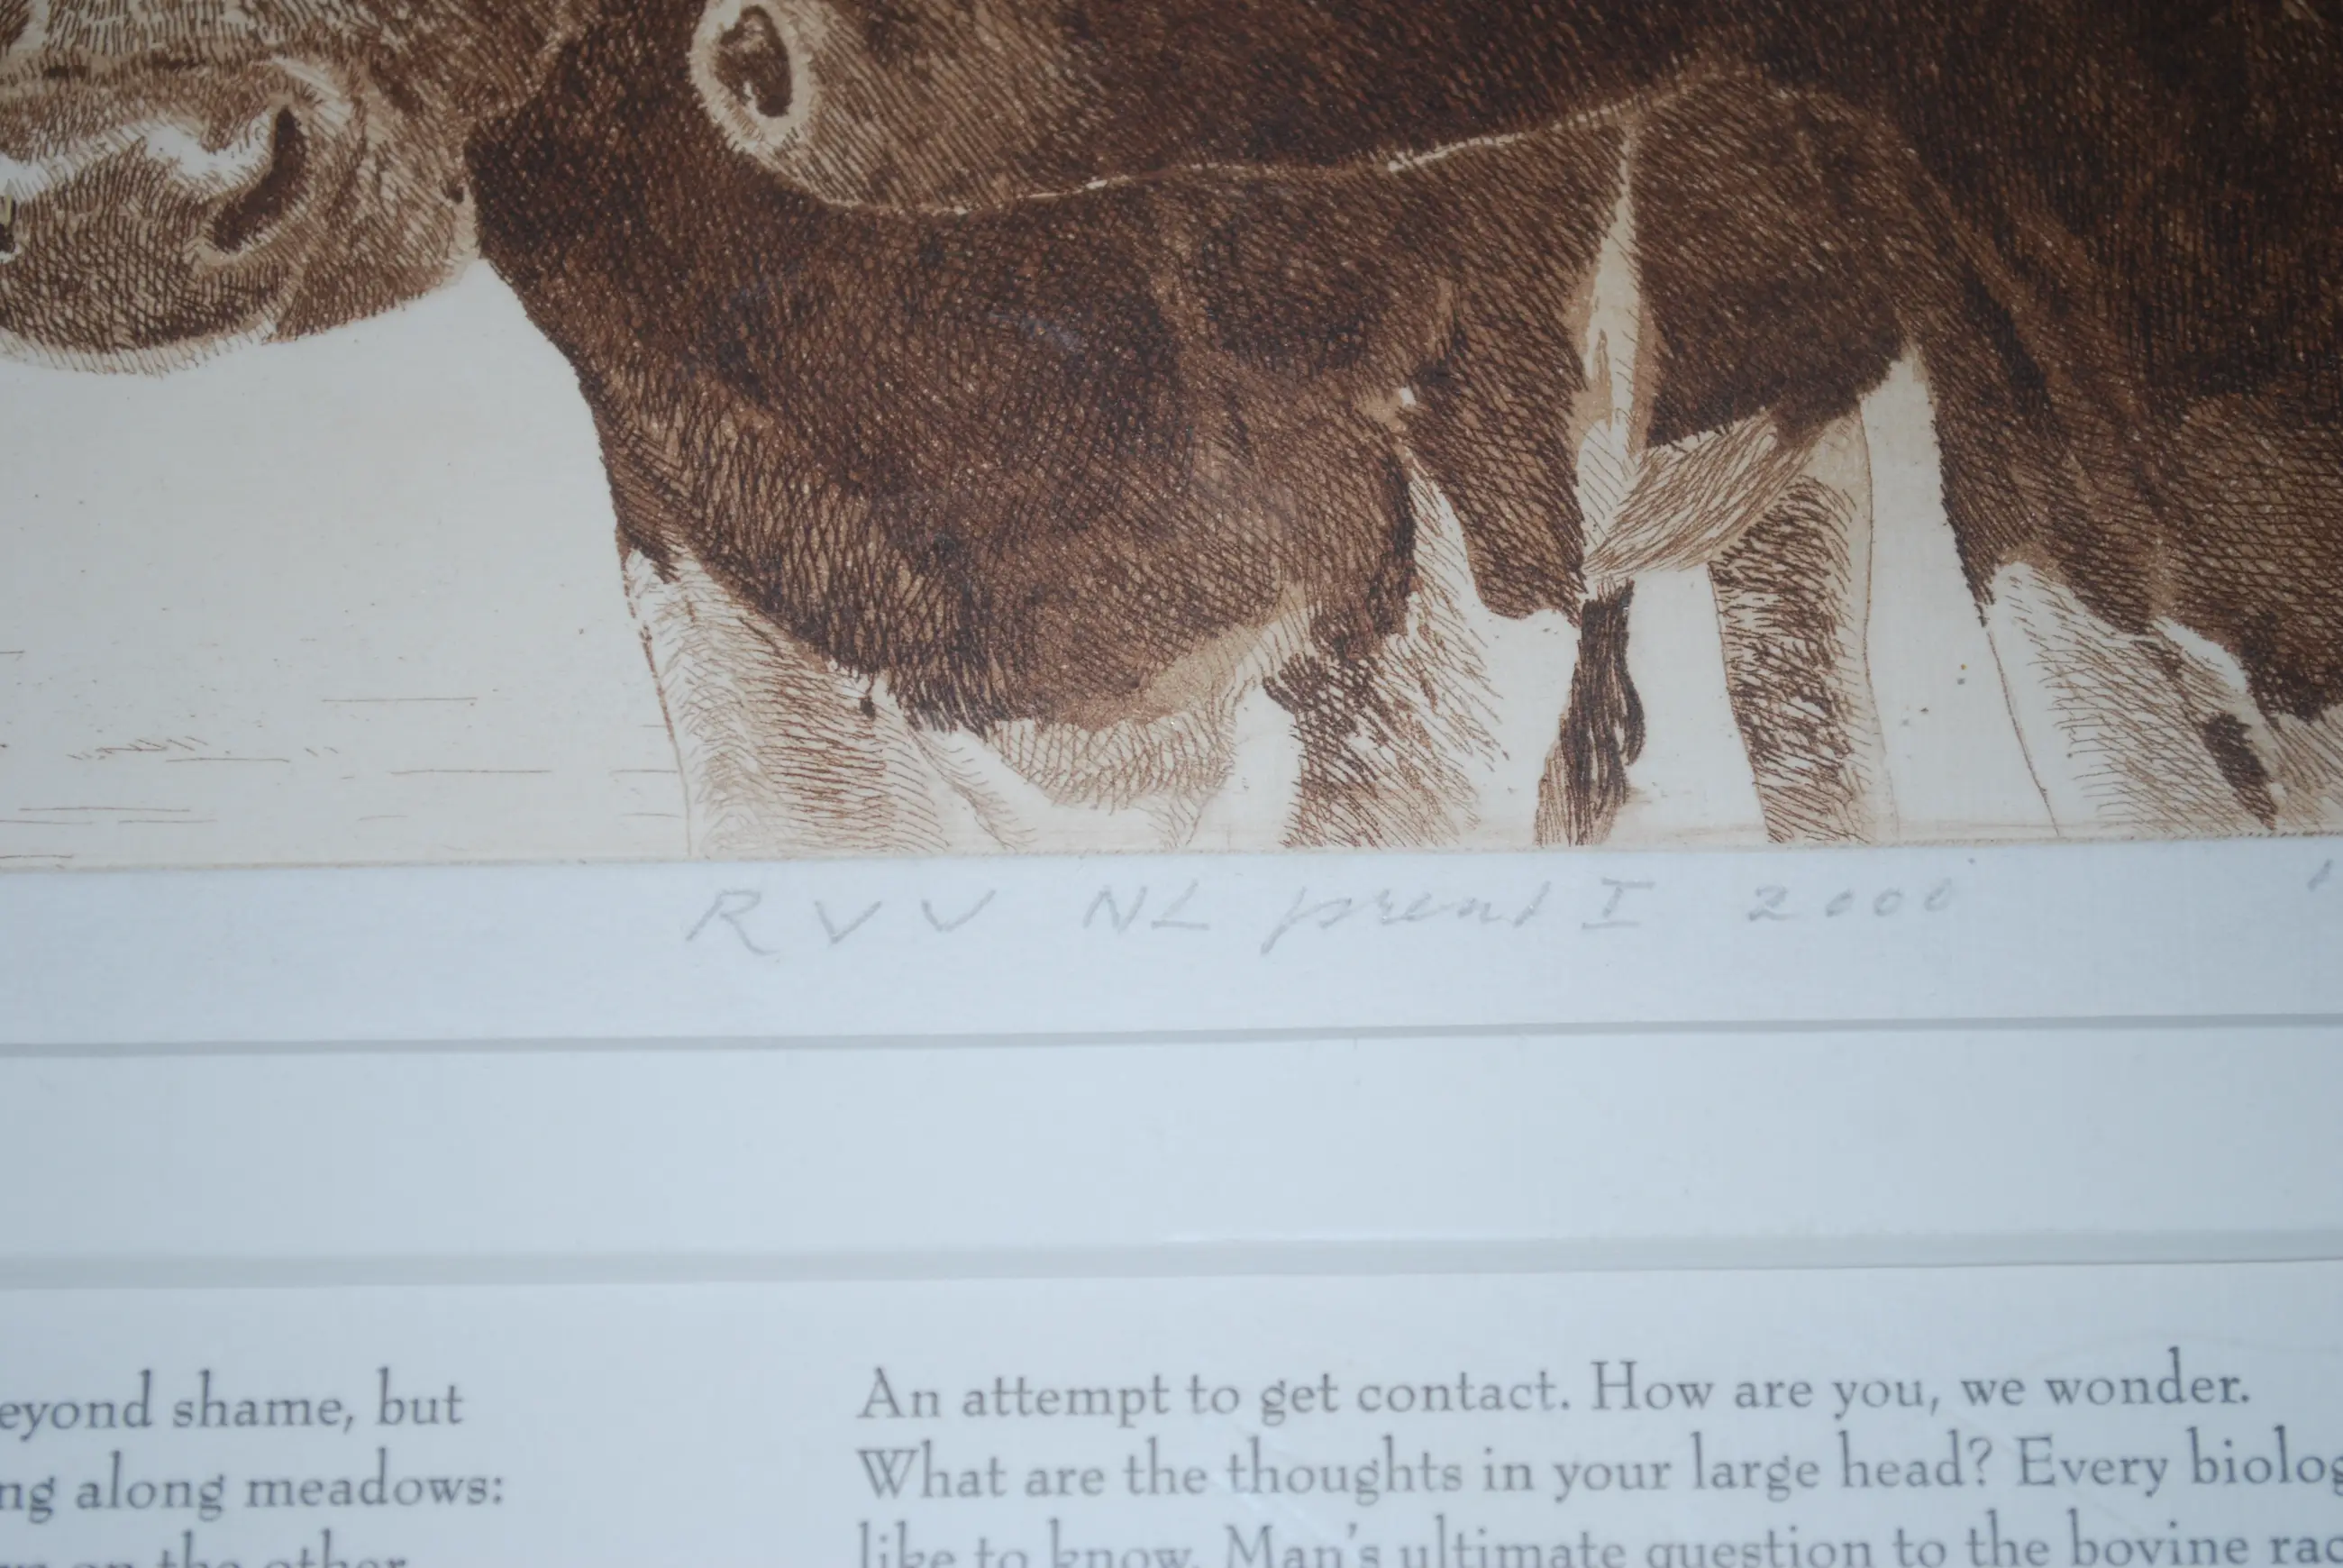 RVV NL prent I 2000
eyond shame, but
ng along meadows:
on the other
An attempt to get contact. How are you, we wonder.
What are the thoughts in your large head? Every biolog
like to know. Man's ultimate question to the bovine rac